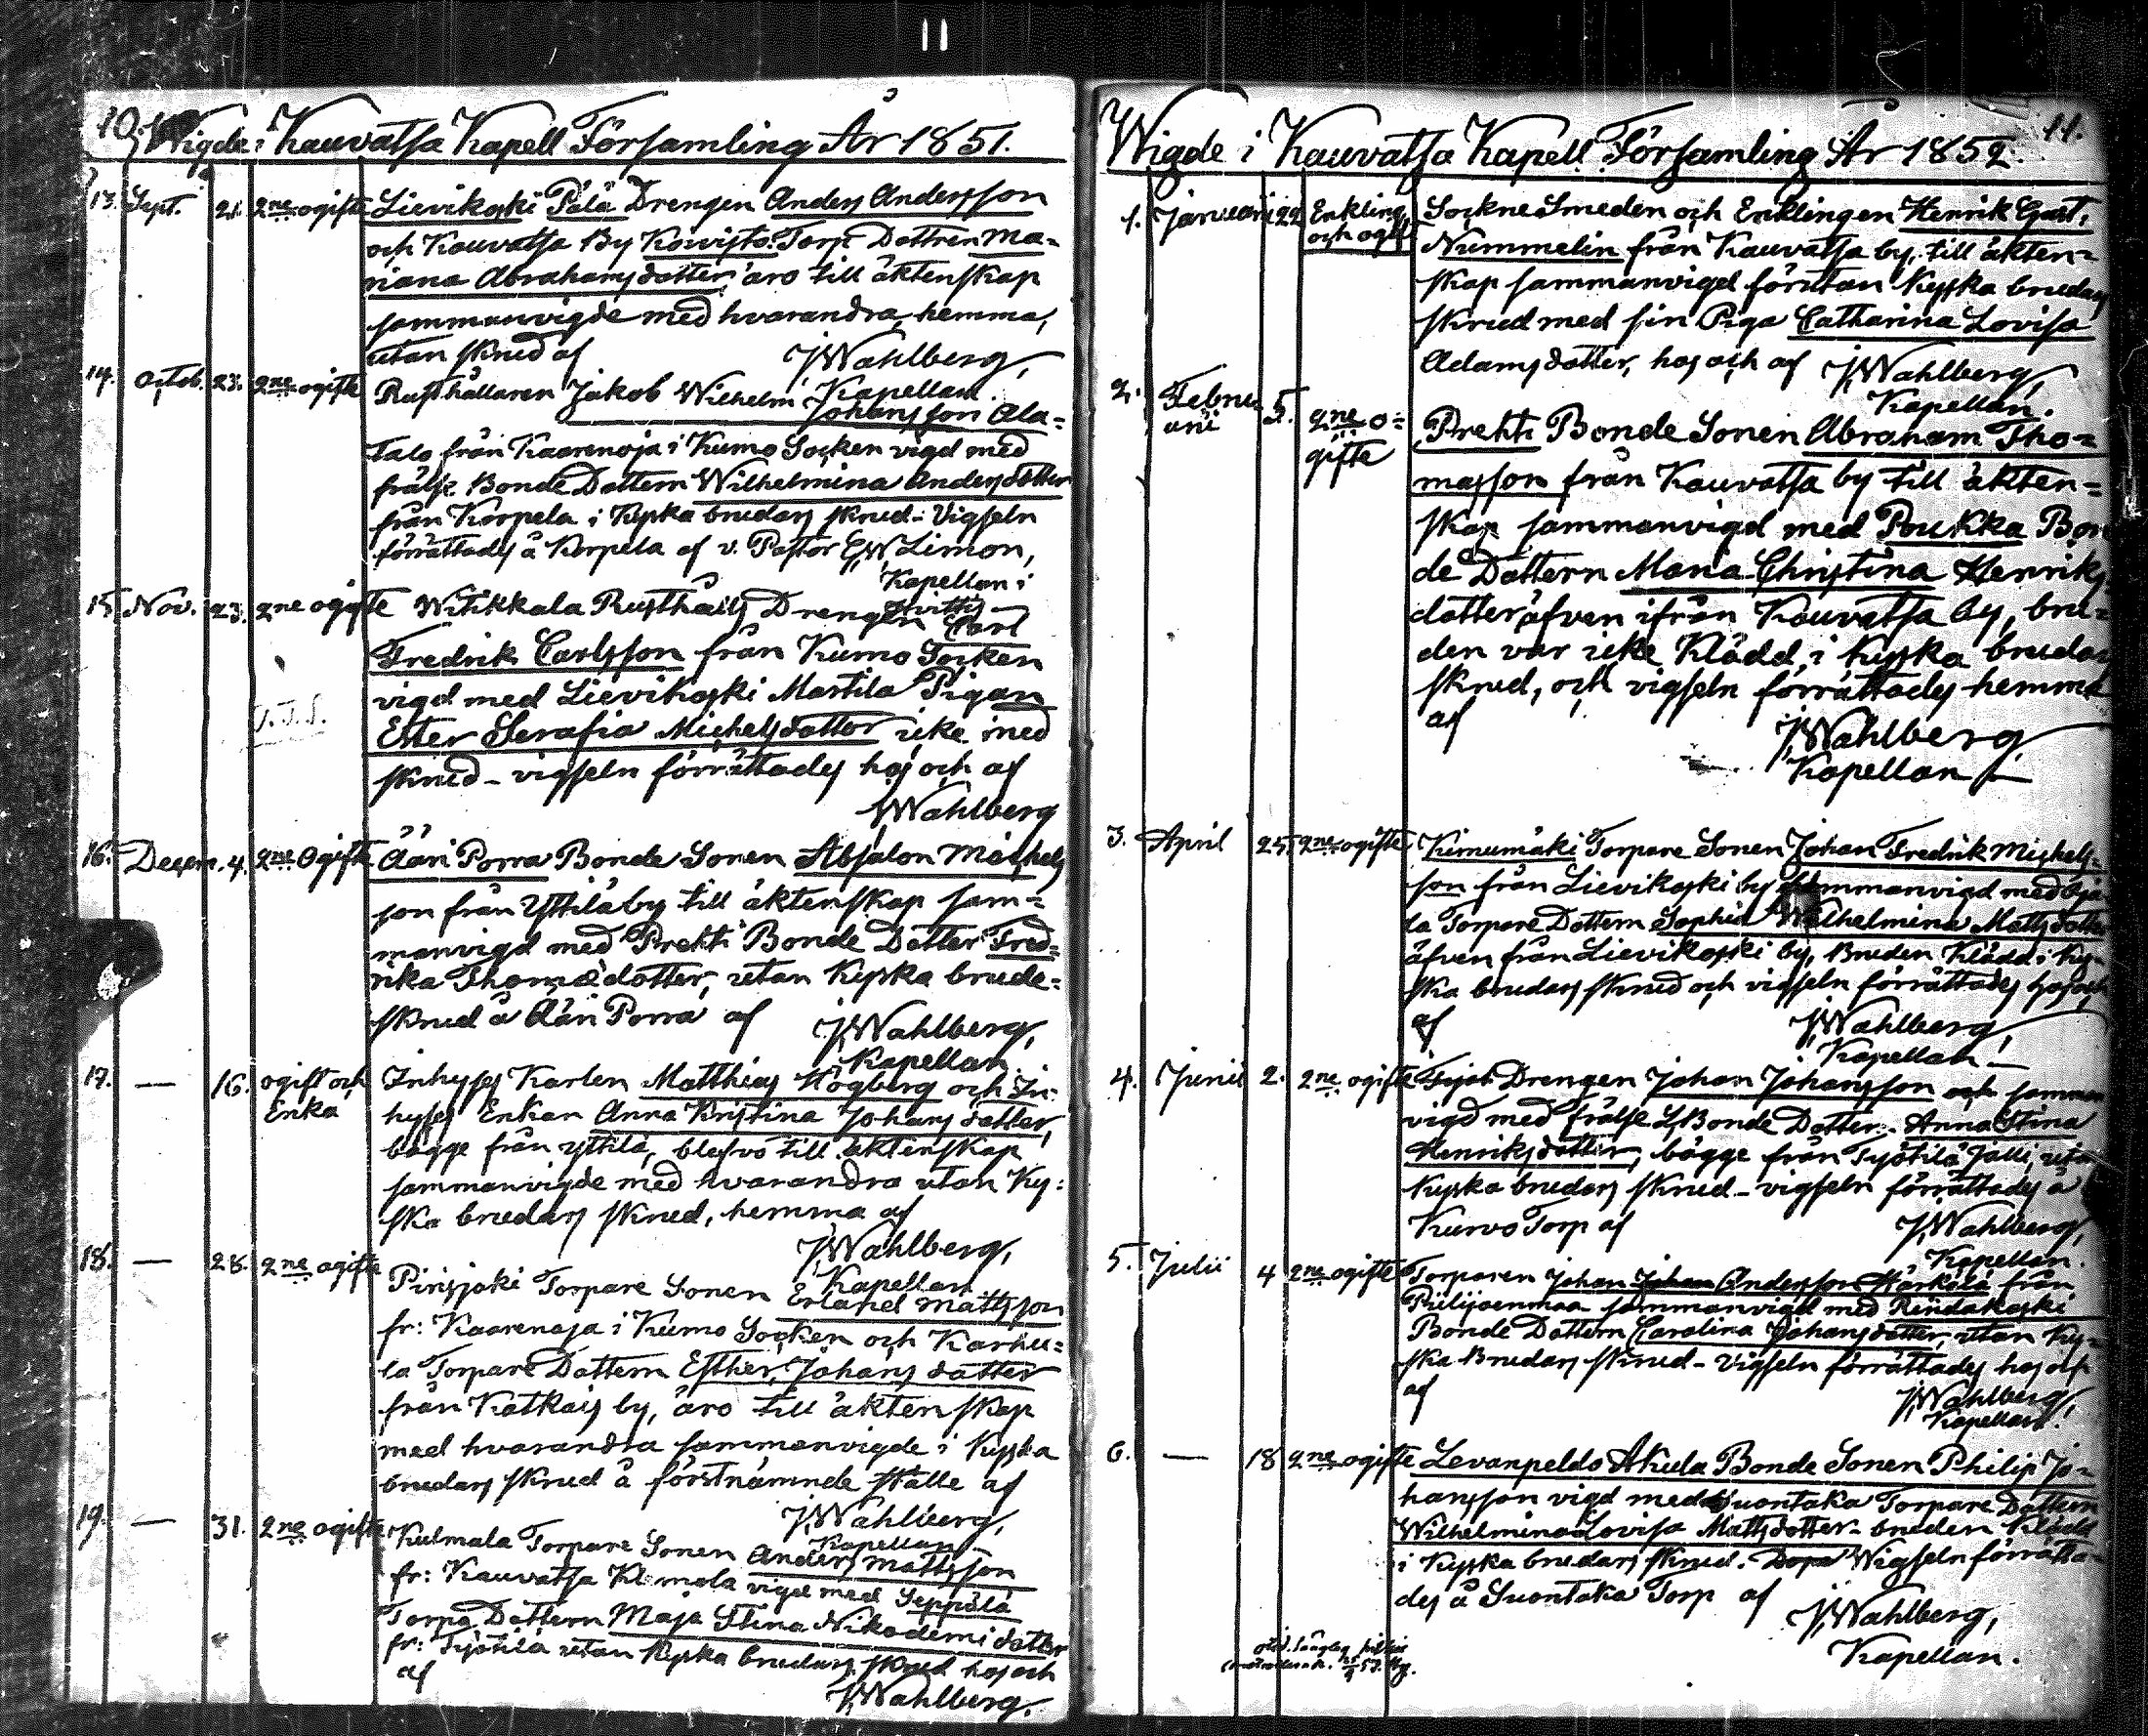 11
10.
Wigde i Kauvatsa Kapell Församling År 1851.
13. Sept. 21. 2ne ogifte Lievikoski Pälä Drengen Anders Andersson
och Kauvatsa By Koivisto Torp Dottren Ma-
riana Abrahamsdotter äro till äktenskap
sammanvigde med hvarandra, hemma,
utan skrud af JWahlberg,
Kapellan.
14. Octob. 23. 2ne ogifte Rusthållaren Jakob Wilhelm
Johansson Ala-
talo från Kaarenoja i Kumo Socken vigd med
frälse Bonde Dottern Wilhelmina Andersdotter
från Korpela i Kyska brudars skrud. Vigseln
förrättades å Korpela af v. Pastor EWLimon,
Kapellan i
Hvittis
15. Nov. 23. 2ne ogifte Witikkala Rusthålls Drengen Carl
Fredrik Carlsson från Kumo Socken
vigd med Lievikoski Mastila Pigan
Ester Serafia Michelsdotter icke med
skrud - vigseln förrättades hos och af
JWahlberg
16. Decem. 4. 2ne Ogifte Ääri Porra Bonde Sonen Absalon Michels
son från Yttilä by till äktenskap sam=
manvigd med Prekti Bonde Dotter Fred=
rika Thomædotter, utan Kyska brude=
skrud å Ääri Porra af JWahlberg,
Kapellan
17. — 16. ogift och Enka Inhyses Karlen Matthias Högberg och In-
hyses Enkan Anna Kristina Johans dotter,
bägge från Yttilä, blefvo till äktenskap
sammanvigde med hvarandra utan Ky=
ska brudars skrud, hemma af
JWahlberg,
Kapellan
18. — 28. 2ne ogifte Pirisjoki Torpare Sonen Erland Mattsson
fr: Kaarenoja i Kumo Socken och Karhu=
la Torpare Dottern Esther Johans dotter
från Katkais by, äro till äktenskap
med hvarandra sammanvigde i Kyska
brudars skrud å förstnämnde ställe af
JWahlberg,
Kapellan
19. — 31. 2ne ogifte Kulmala Torpare Sonen Anders Mattsson
fr: Kauvatsa vigd med Seppälä
Torpa Dottern Maja Stina Nikodemi dotter
fr: Työtilä utan Kyska brudars skrud hos och
af
JWahlberg.
11.
Wigde i Kauvatsa Kapell Församling År 1852.
1. Januari 22 Enkling och ogift Sockne Smeden och Enklingen Henrik Gust.
Nummelin från Kauvatsa by, till äkten=
skap sammanvigd förutan Kyska brudars
skrud med sin Piga Catharina Lovisa
Adamsdotter, hos och af JWahlberg,
Kapellan.
2. Febru arii 5. 2ne o= gifte Prekti Bonde Sonen Abraham Tho=
masson från Kauvatsa by till äkten=
skap sammanvigd med Poukka Bon
de Dottern Maria Christina Henriks
dotter äfven ifrån Kauvatsa by, bru=
den var icke Klädd, i Kyska brudar
skrud, och vigseln förrättades hemma
af
JWahlberg
Kapellan
3. April 25. 2ne ogifte Torpare Sonen Johan Fredrik Michels=
son från Lievikoski by sammanvigd med
la Torpare Dottern Sophia Wilhelmina Mattsdotter
äfven från Lievikoski by, Bruden Klädd i Ky=
ska brudars skrud och vigseln förrättades hos och
af JWahlberg,
Kapellan
4. Junii 2. 2ne ogifte Drengen Johan Johansson och samman
vigd med frälse Bonde Dotter Anna Stina
Henriksdotter, bägge från Työtilä Jalli, utan
Kyska brudars skrud - vigseln förrättades å
Kurvo Torp af JWahlberg,
Kapellan.
5. Julii 4 2ne ogifte Torparen Johan Johan Andersson Härkälä från
Piilijoenmaa sammanvigd med Rindakoski
Bonde Dottern Carolina Johansdotter, utan Ky=
ska Brudars skrud - vigseln förrättades hos och
af JWahlberg,
Kapellan.
6. — 18 2ne ogifte Levanpeldo Akula Bonde Sonen Philip Jo=
hansson vigd med Suontaka Torpare Dottern
Wilhelmina Lovisa Mattsdotter - bruden Klädd
i Kyska brudars skrud. Wigseln förrätta-
des å Suontaka Torp af JWahlberg,
Kapellan.